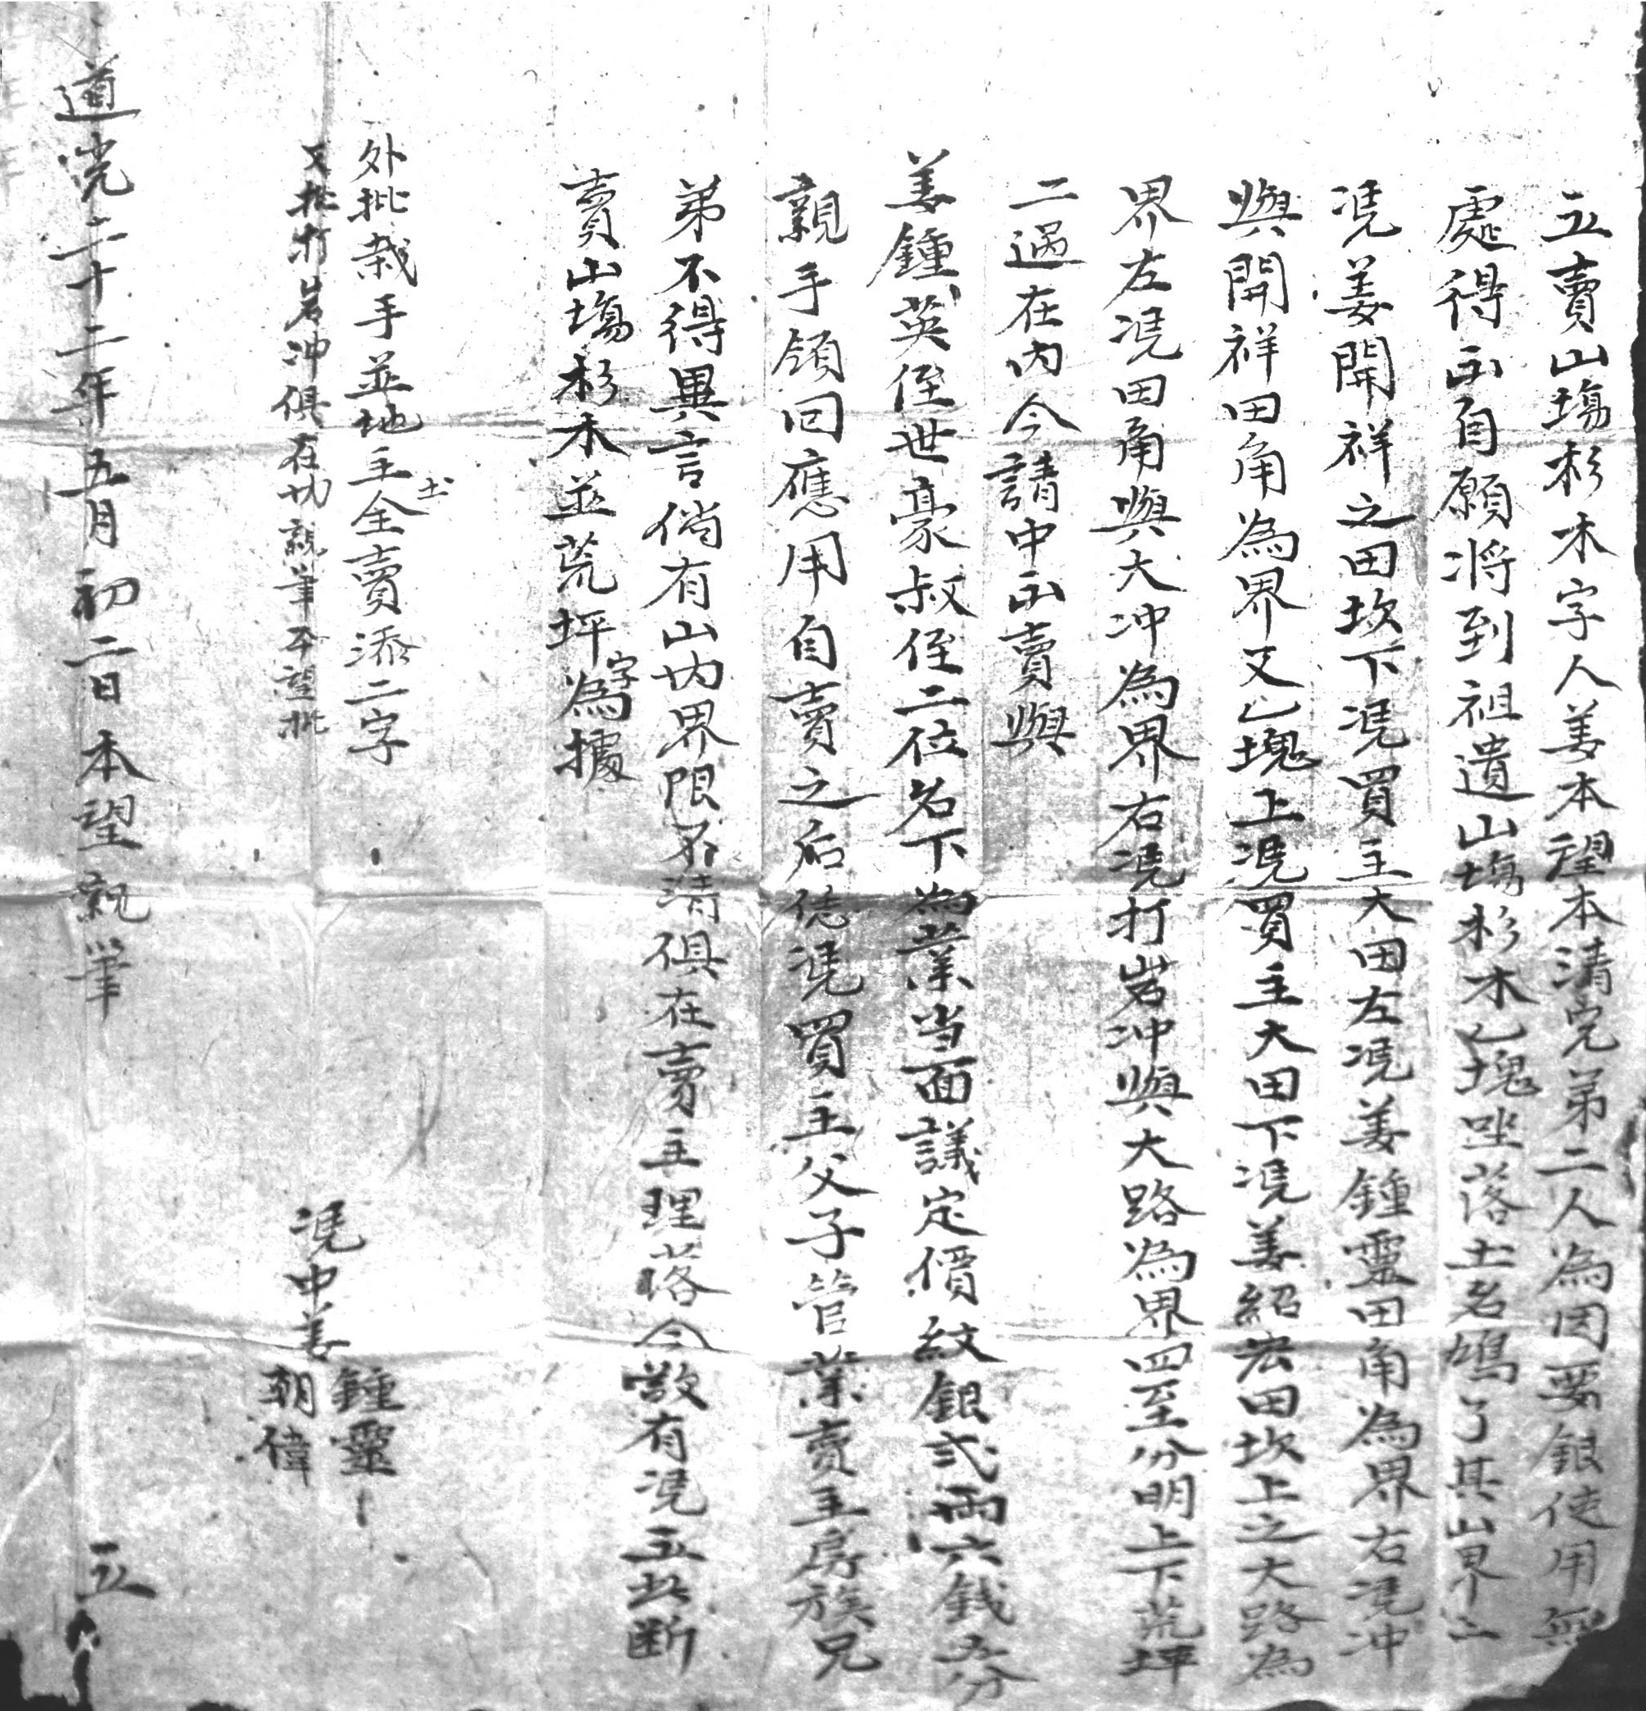 立賣山塲杉木字人姜本望本清完弟二人為因要銀使用無
處得出自願将到祖遺山塲杉木乙塊坐落土名鳩了其山界上
凴姜開祥之田坎下凴買主大田左凴姜鍾靈田角為界右凴冲
與開祥田角為界又乙塊上凴買主大田下凴姜紹宏田坎上之大路為
界左凴田角與大冲為界右凴打岩冲與大路為界四至分明上下荒坪
二過在内今請中出賣與
姜鍾英侄世豪叔侄二位名下為業当面議定價紋銀弍兩六錢五分
親手領回應用自賣之后凴買主父子管業賣主房族兄
弟不得異言倘有山内界限不清俱在賣主理落今欲有凴立此断
賣山塲杉木並荒坪字為據
外批栽手並地主土全賣添二字
又批打岩冲俱在内親筆本望批
凴中姜鍾靈
朝偉
道光二十二年五月初二日本望親筆 立